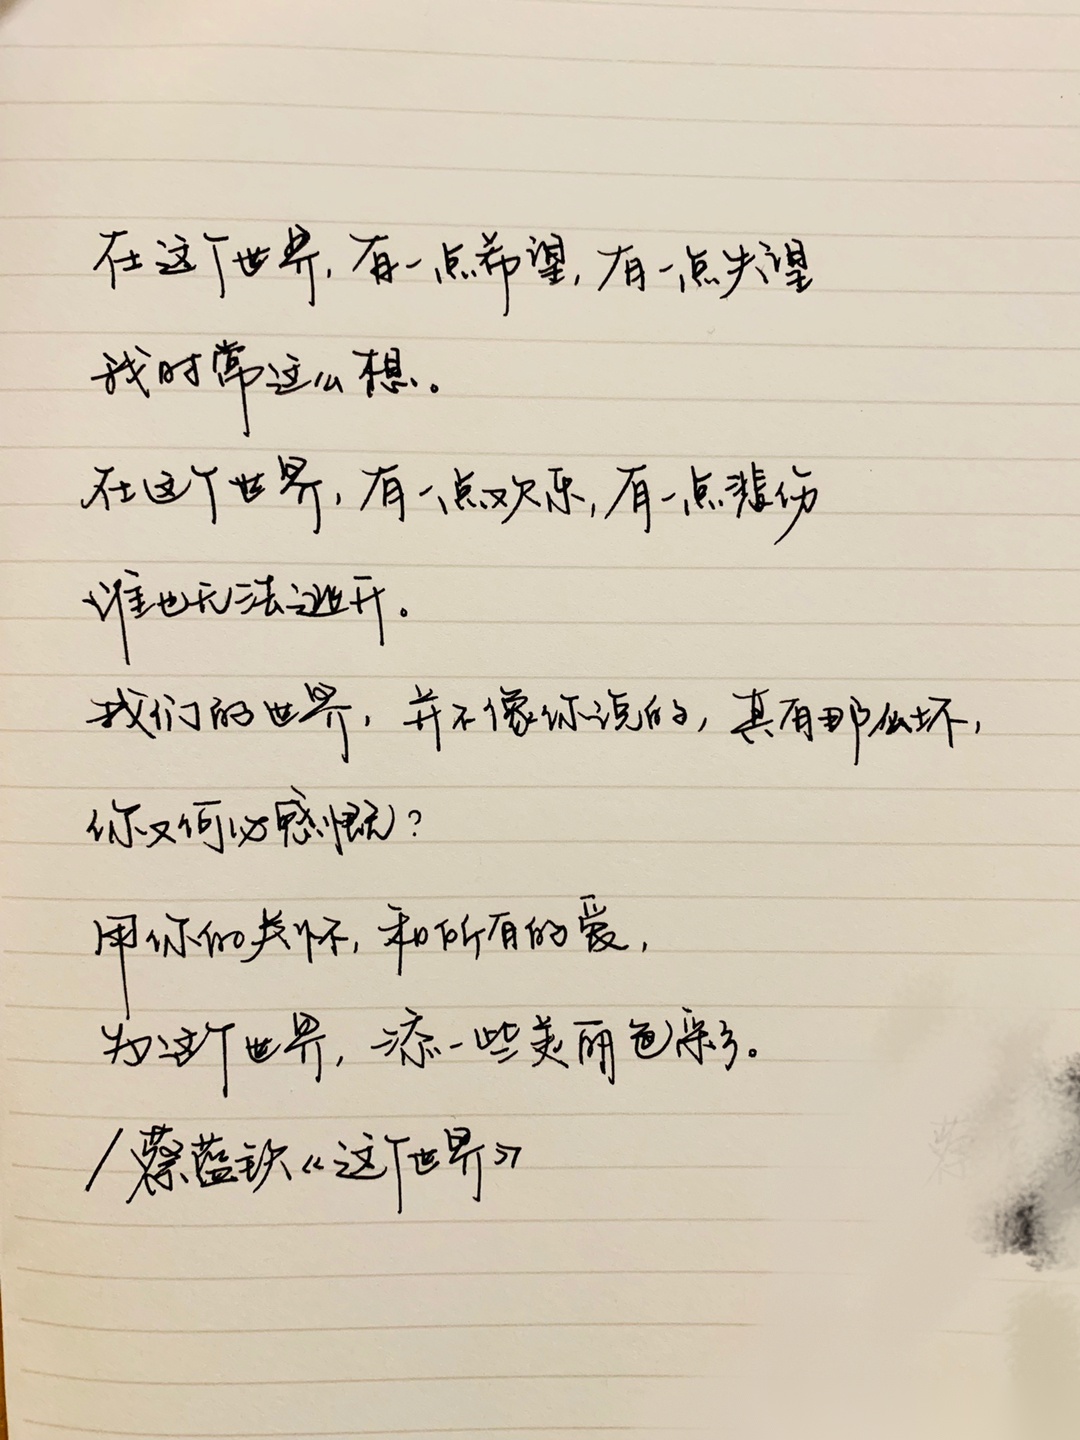 在这个世界,有一点希望,有一点失望
我时常这么想。
在这个世界,有一点欢乐,有一点悲伤
谁也无法逃开。
我们的世界,并不像你说的,真有那么坏,
你又何必感慨?
用你的关怀,和所有的爱,
为这个世界,添一些美丽色彩。
/蔡蓝钦《这个世界》